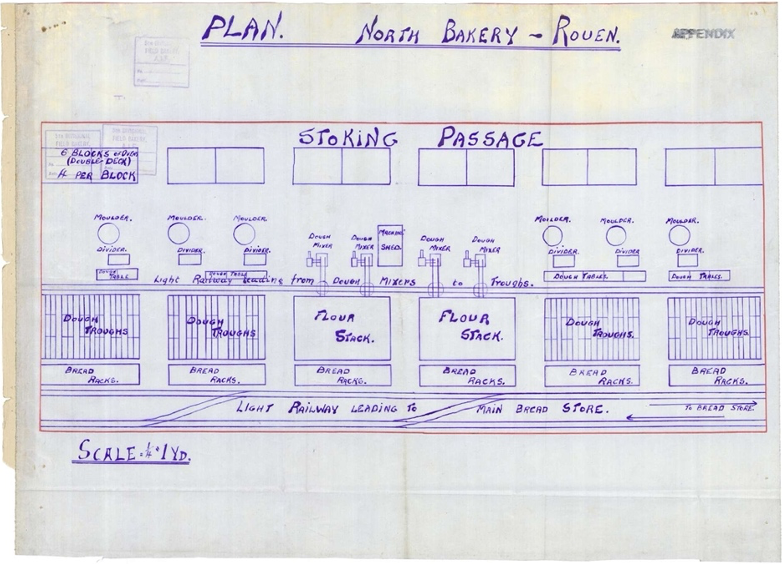 PLAN. NORTH BAKERY - ROUEN.
APPENDIX
STOKING PASSAGE
6 BLOCKS
(DOUBLE-DECK)
4 PER BLOCK
MOULDER. MOULDER. MOULDER. MOULDER. MOULDER. MOULDER.
DOUGH MIXER DOUGH MIXER MACHINE SHED. DOUGH MIXER DOUGH MIXER
DIVIDER DIVIDER. DIVIDER. DIVIDER DIVIDER DIVIDER.
DOUGH TABLE DOUGH TABLE DOUGH TABLES. DOUGH TABLES.
Light Railway leading from Dough Mixers to Troughs.
DOUGH TROUGHS DOUGH TROUGHS FLOUR STACK. FLOUR STACK. DOUGH TROUGHS. DOUGH TROUGHS
BREAD RACKS. BREAD RACKS. BREAD RACKS. BREAD RACKS. BREAD RACKS. BREAD RACKS.
LIGHT RAILWAY LEADING TO MAIN BREAD STORE. TO BREAD STORE.
SCALE = 1 YD.